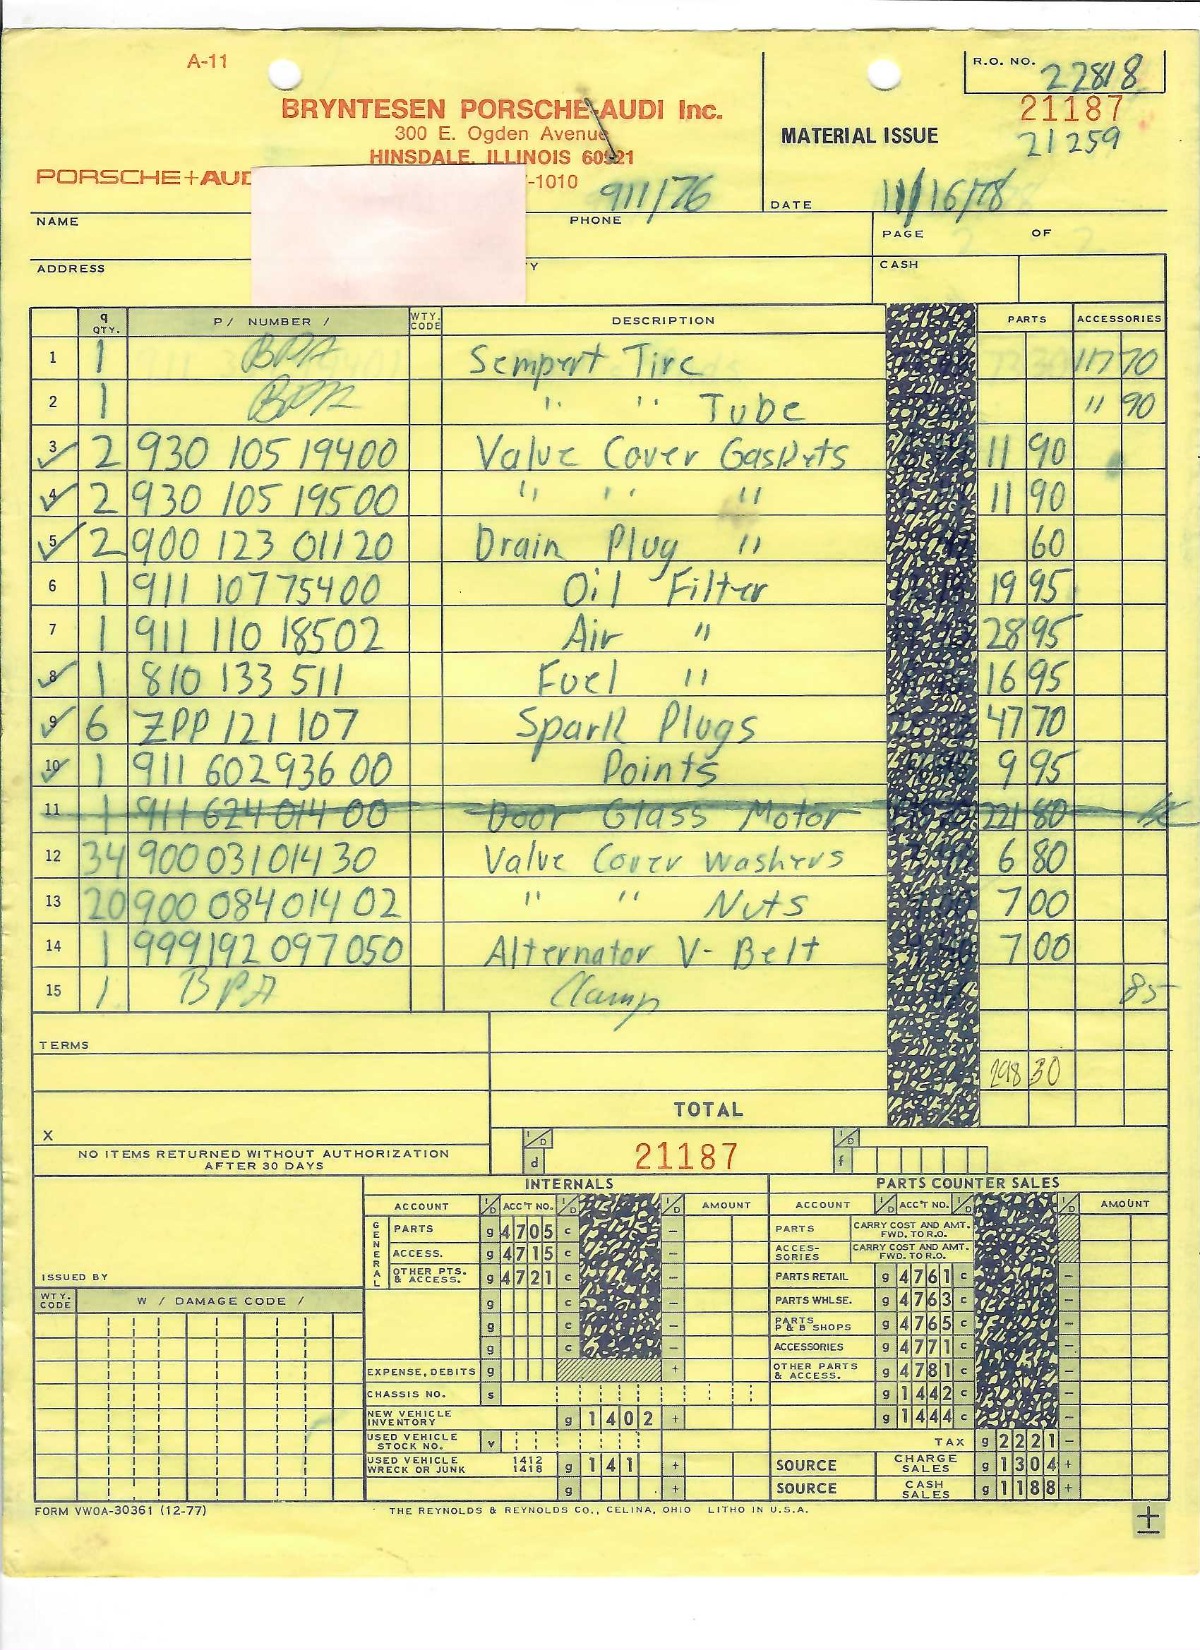 A-11
R.O. NO. 22818
BRYNTESEN PORSCHE-AUDI Inc.
21187
300 E. Ogden Avenue
MATERIAL ISSUE 21259
HINSDALE, ILLINOIS 60521
PORSCHE+AUD
-1010 911/76
DATE 11/16/78
NAME PHONE
PAGE OF
ADDRESS Y CASH
q QTY. P/ NUMBER / WTY. CODE DESCRIPTION PARTS ACCESSORIES
1 1 BPA Sempert Tire 117 70
2 1 BPA " " Tube 11 90
3 2 930 105 19400 Valve Cover Gaskets 11 90
4 2 930 105 19500 " " " 11 90
5 2 900 123 01120 Drain Plug " 60
6 1 911 107 75400 Oil Filter 19 95
7 1 911 110 18502 Air " 28 95
8 1 810 133 511 Fuel " 16 95
9 6 ZPP 121 107 Spark Plugs 47 70
10 1 911 602 936 00 Points 9 95
11 1 911 624 014 00 Door Glass Motor 221 80
12 34 900 031 014 30 Valve Cover Washers 6 80
13 20 900 084 014 02 " " Nuts 7 00
14 1 999 192 097 050 Alternator V-Belt 7 00
15 1 BPA Clamp 85
TERMS
298 30
TOTAL
X
NO ITEMS RETURNED WITHOUT AUTHORIZATION
AFTER 30 DAYS
I/D d 21187 I/D f
INTERNALS PARTS COUNTER SALES
ACCOUNT I/D ACC'T NO. I/D I/D AMOUNT ACCOUNT I/D ACC'T NO. I/D I/D AMOUNT
GENERAL
PARTS g 4705 c - PARTS CARRY COST AND AMT. FWD. TO R.O.
ACCESS. g 4715 c - ACCES-SORIES CARRY COST AND AMT. FWD. TO R.O.
OTHER PTS. & ACCESS. g 4721 c - PARTS RETAIL g 4761 c -
ISSUED BY
g c - PARTS WHLSE. g 4763 c -
g c - PARTS P & B SHOPS g 4765 c -
g c - ACCESSORIES g 4771 c -
WTY. CODE W / DAMAGE CODE /
EXPENSE, DEBITS g + OTHER PARTS & ACCESS. g 4781 c -
CHASSIS NO. s g 1442 c -
NEW VEHICLE INVENTORY g 1402 + g 1444 c -
USED VEHICLE STOCK NO. v TAX g 2221 -
USED VEHICLE WRECK OR JUNK 1412 1418 g 141 + SOURCE CHARGE SALES g 1304 +
g + SOURCE CASH SALES g 1188 +
FORM VWOA-30361 (12-77) THE REYNOLDS & REYNOLDS CO., CELINA, OHIO LITHO IN U.S.A.
±